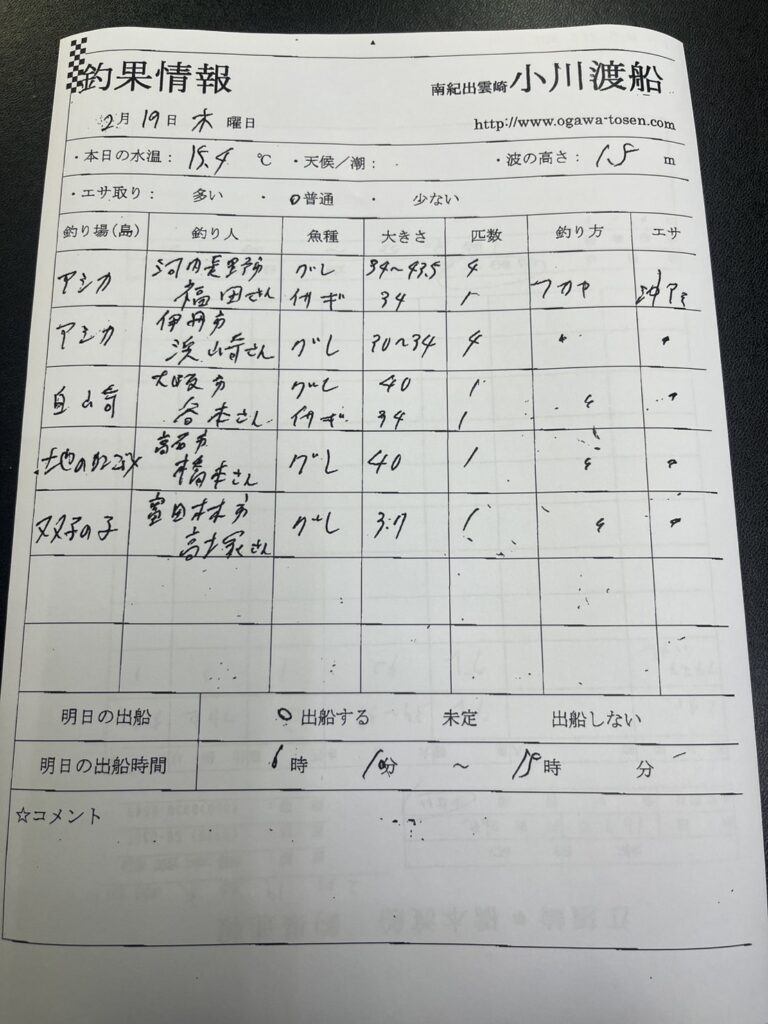 釣果情報 南紀出雲崎 小川渡船
2月 19日 木 曜日 http://www.ogawa-tosen.com
・本日の水温： 15.4 ℃ ・天候／潮： ・波の高さ： 1.5 m
・エサ取り： 多い ・ 普通 ・ 少ない
釣り場（島） 釣り人 魚種 大きさ 匹数 釣り方 エサ
アシカ 河内長野市 グレ 34〜43.5 4
福田さん イサギ 34 1 フカセ 沖アミ
アシカ 伊丹市
浜崎さん グレ 30〜34 4 〃 〃
大阪市 グレ 40 1
谷本さん イサギ 34 1 〃 〃
高石市
橋本さん グレ 40 1 〃 〃
双子の子 富田林市 グレ 37 1 〃 〃
高士冢さん
明日の出船 出船する 未定 出船しない
明日の出船時間 6時 10分 〜 15時 分
☆コメント